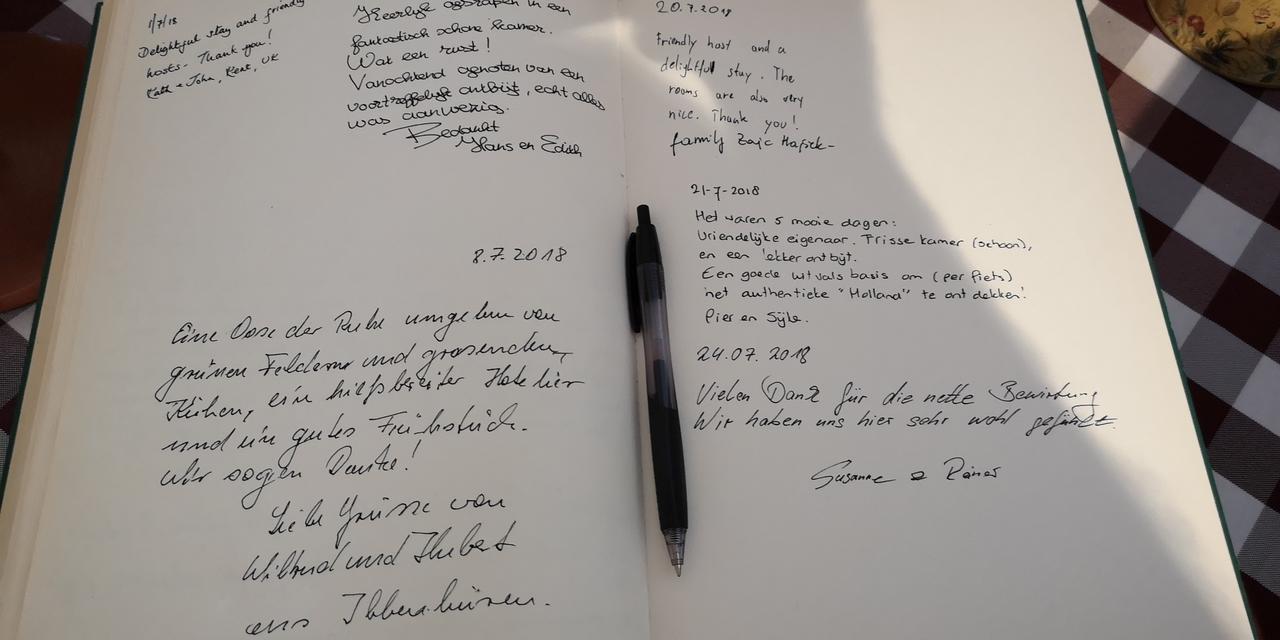 1/7/18
Delightful stay and friendly
hosts - Thank you!
Kath & John, Kent, UK
Heerlijk geslapen in een
fantastisch schone kamer.
Wat een rust!
Vanochtend genoten van een
voortreffelijk ontbijt, echt alles
was aanwezig.
Bedankt
Hans en Edith
8.7.2018
Eine Oase der Ruhe umgeben von
grünen Feldern und grasenden
Kühen, ein hilfsbereiter Hotelier
und ein gutes Frühstück.
Wir sagen Danke!
Liebe Grüsse von
Wiltrud und Hubert
aus Ibbenbüren.
20.7.2018
Friendly host and a
delightful stay. The
rooms are also very
nice. Thank you!
family Zajc
21-7-2018
Het waren 5 mooie dagen:
Vriendelijke eigenaar. Frisse kamer (schoon),
en een lekker ontbijt.
Een goede uitvals basis om (per fiets)
het authentieke "Holland" te ontdekken!
Pier en Sijke.
24.07.2018
Vielen Dank für die nette Bewirtung
Wir haben uns hier sehr wohl gefühlt.
Susanne & Rainer